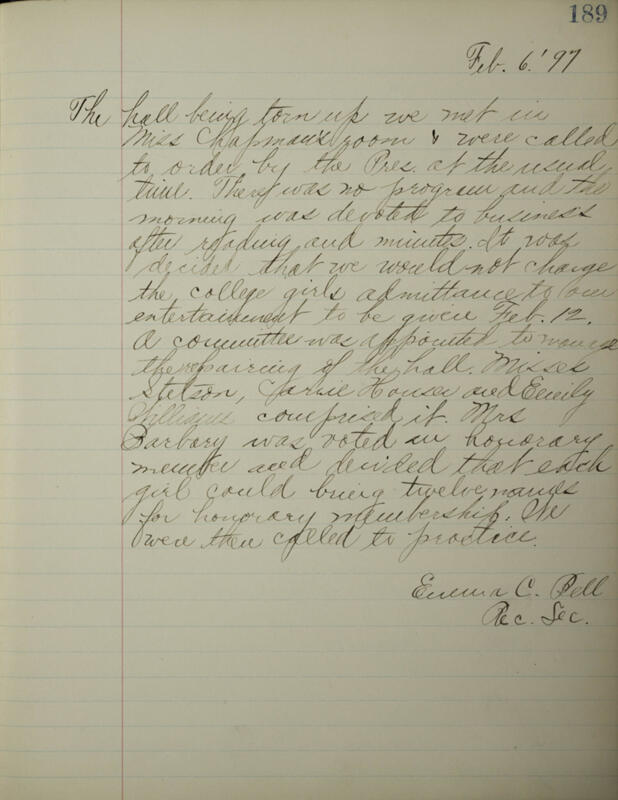 189
Feb. 6.' 97
The hall being torn up we met in
Miss Chapman's room & were called
to order by the Pres. at the usual
time. There was no program and the
morning was devoted to business
after reading and minutes. It was
decided that we would not charge
the college girls admittance to our
entertainment to be given Feb. 12.
A committee was appointed to manage
the repairing of the hall. Misses
Stetson, Carrie Houser and Emily
Williams comprised it. Mrs
Barbary was voted an honorary
member and decided that each
girl could bring twelve names
for honorary membership. We
were then called to practice.
Emma C. Bell
Rec. Sec.